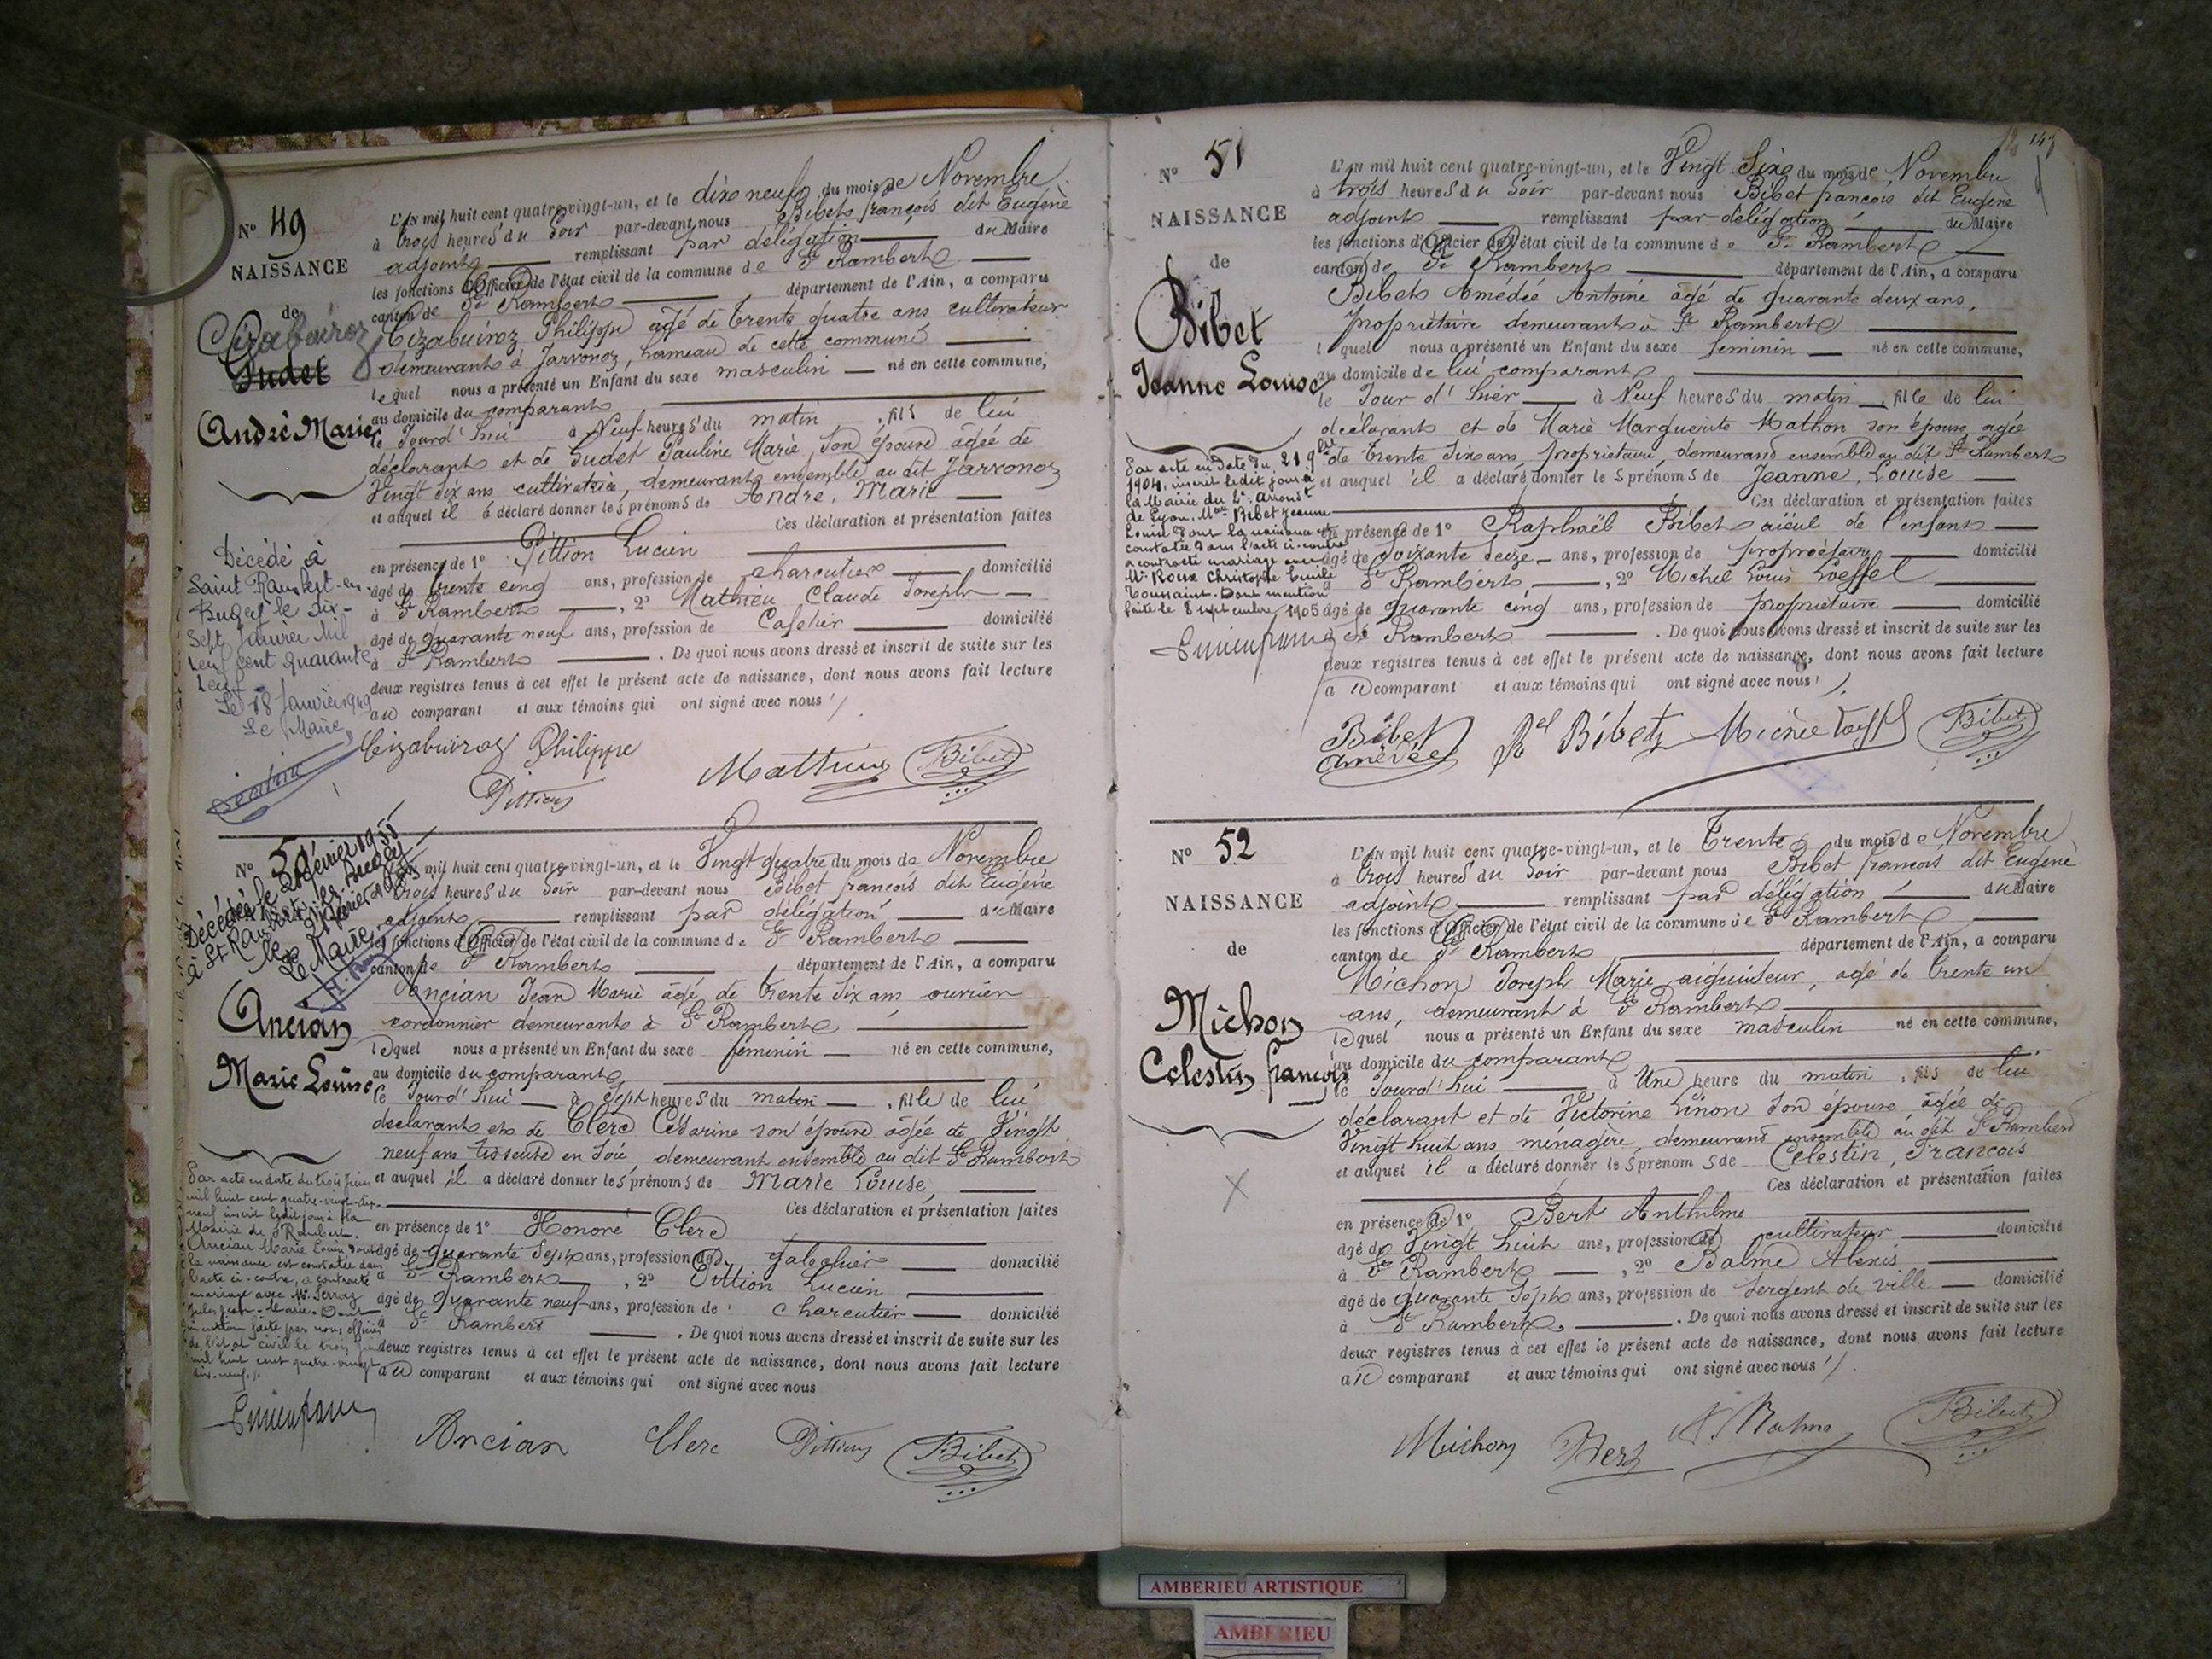 N° 49
NAISSANCE
de
Cizabuiroz
Gudet
André Marie
Décédé à
Saint Rambert-en-
Bugey le dix-
sept janvier mil
neuf cent quarante
neuf
Le 18 Janvier 1949
Le Maire,
L'AN mil huit cent quatre-vingt-un, et le dix neuf du mois de Novembre
à trois heures du soir par-devant nous Bibet françois dit Eugène
adjoint remplissant par délégation du Maire
les fonctions d'Officier de l'état civil de la commune de St Rambert
canton de St Rambert département de l'Ain, a comparu
Cizabuiroz Philippe agé de trente quatre ans cultivateur
demeurant à Jarvonoz, hameau de cette commune
lequel nous a présenté un Enfant du sexe masculin né en cette commune,
au domicile du comparant
le Jourd'hui à Neuf heures du matin, fils de lui
déclarant et de Gudet Pauline Marie, son épouse âgée de
Vingt six ans cultivatrice, demeurant ensemble au dit Jarvonoz
et auquel il a déclaré donner les prénoms de André, Marie
Ces déclaration et présentation faites
en présence de 1° Pittion Lucien
âgé de trente cinq ans, profession de charcutier domicilié
à St Rambert, 2° Mathieu Claude Joseph
âgé de quarante neuf ans, profession de Cafetier domicilié
à St Rambert. De quoi nous avons dressé et inscrit de suite sur les
deux registres tenus à cet effet le présent acte de naissance, dont nous avons fait lecture
au comparant et aux témoins qui ont signé avec nous
Cizabuiroz Philippe
Pittion
Mathieu
Bibet
N° 5
Décédée le Février 1955
à St Rambert-en-Bugey
le 21 février 1955
Le Maire
Ancian
Marie Louise
Par acte en date du trois juin
mil huit cent quatre-vingt-dix-
neuf inscrit ledit jour à la
Mairie de St Rambert.
Ancian Marie Louise dont
la naissance est constatée dans
l'acte ci-contre, a contracté
mariage avec Mr. Serraz
Jules Jean-Marie. Dont
mention faite par nous officier
de l'état civil le trois juin
mil huit cent quatre-vingt
dix-neuf.
L'AN mil huit cent quatre-vingt-un, et le Vingt quatre du mois de Novembre
à trois heures du soir par-devant nous Bibet françois dit Eugène
adjoint remplissant par délégation du Maire
les fonctions d'Officier de l'état civil de la commune de St Rambert
canton de St Rambert département de l'Ain, a comparu
Ancian Jean Marie âgé de trente six ans ouvrier
cordonnier demeurant à St Rambert
lequel nous a présenté un Enfant du sexe féminin né en cette commune,
au domicile du comparant
le Jourd'hui à Sept heures du matin, fille de lui
déclarant et de Clerc Césarine son épouse âgée de Vingt
neuf ans tisseuse en soie, demeurant ensemble au dit St Rambert
et auquel il a déclaré donner les prénoms de Marie Louise,
Ces déclaration et présentation faites
en présence de 1° Honoré Clerc
âgé de quarante sept ans, profession de galochier domicilié
à St Rambert, 2° Pittion Lucien
âgé de quarante neuf ans, profession de charcutier domicilié
à St Rambert. De quoi nous avons dressé et inscrit de suite sur les
deux registres tenus à cet effet le présent acte de naissance, dont nous avons fait lecture
au comparant et aux témoins qui ont signé avec nous
Ancian Clerc Pittion Bibet
N° 51
NAISSANCE
de
Bibet
Jeanne Louise
Par acte en date du 21 9bre
1904, inscrit ledit jour à
la Mairie du 2e. arrondt
de Lyon, Melle Bibet Jeanne
Louise dont la naissance est
constatée dans l'acte ci-contre
a contracté mariage avec
Mr Roux Christophe Emile
Toussaint. Dont mention
faite le 8 septembre 1905
L'AN mil huit cent quatre-vingt-un, et le Vingt Six du mois de Novembre
à trois heures du soir par-devant nous Bibet françois dit Eugène
adjoint remplissant par délégation du Maire
les fonctions d'Officier de l'état civil de la commune de St Rambert
canton de St Rambert département de l'Ain, a comparu
Bibet Amédée Antoine âgé de quarante deux ans,
propriétaire demeurant à St Rambert
lequel nous a présenté un Enfant du sexe féminin né en cette commune,
au domicile de lui comparant
le Jour d'hier à Neuf heures du matin, fille de lui
déclarant et de Marie Marguerite Mathon son épouse agée
de trente six ans, propriétaire, demeurant ensemble au dit St Rambert
et auquel il a déclaré donner les prénoms de Jeanne, Louise
Ces déclaration et présentation faites
en présence de 1° Raphaël Bibet aïeul de l'enfant
âgé de soixante seize ans, profession de propriétaire domicilié
à St Rambert, 2° Michel Louis Loeffel
âgé de quarante cinq ans, profession de propriétaire domicilié
à St Rambert. De quoi nous avons dressé et inscrit de suite sur les
deux registres tenus à cet effet le présent acte de naissance, dont nous avons fait lecture
au comparant et aux témoins qui ont signé avec nous
Bibet
Amédée
Rel Bibet
Bibet
N° 52
NAISSANCE
de
Michon
Celestin françois
L'AN mil huit cent quatre-vingt-un, et le Trente du mois de Novembre
à trois heures du soir par-devant nous Bibet françois dit Eugène
adjoint remplissant par délégation du Maire
les fonctions d'Officier de l'état civil de la commune de St Rambert
canton de St Rambert département de l'Ain, a comparu
Michon Joseph Marie aiguiseur, agé de trente un
ans, demeurant à St Rambert
lequel nous a présenté un Enfant du sexe masculin né en cette commune,
au domicile du comparant
le Jourd'hui à Une heure du matin, fils de lui
déclarant et de Victorine Linon son épouse âgée de
Vingt huit ans ménagère, demeurant ensemble au dit St Rambert
et auquel il a déclaré donner les prénoms de Celestin, François
Ces déclaration et présentation faites
en présence de 1° Bert Anthelme
âgé de Vingt huit ans, profession de cultivateur domicilié
à St Rambert, 2° Balme Alexis
âgé de quarante sept ans, profession de Sergent de ville domicilié
à St Rambert. De quoi nous avons dressé et inscrit de suite sur les
deux registres tenus à cet effet le présent acte de naissance, dont nous avons fait lecture
au comparant et aux témoins qui ont signé avec nous
Michon Bert A. Balme Bibet
AMBERIEU ARTISTIQUE
AMBERIEU